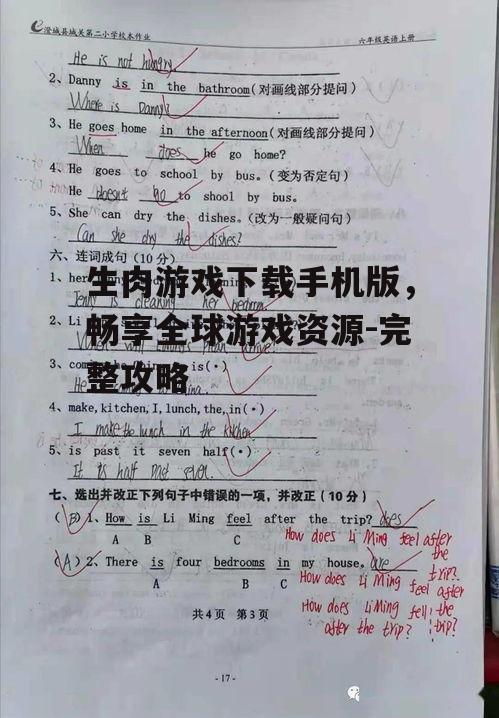 澄城县城关第二小学校本作业 六年级英语上册
He is not hungry
2、Danny is in the bathroom(对画线部分提问)
Where is Danny?
3、He goes home in the afternoon(对画线部分提问)
When does he go home?
4、He goes to school by bus.(变为否定句)
He doesn't go to shool by bus.
5、She can dry the dishes.(改为一般疑问句)
Can she dry the dishes?
六、连词成句(10分)
1、her
生肉游戏下载手机版，
Jenny is cleaning her bedroom.
2、Li
畅享全球游戏资源-完
3、com is(·)
整攻略
4、make,kitchen,I,lunch,the,in(·)
I make the lunch in the kitchen
5、is past it seven half(·)
It is half past seven.
七、选出并改正下列句子中错误的一项，并改正(10分)
(B)1、How is Li Ming feel after the trip? does
A B C
How does Li Ming feel after the trip?
(A)2、There is four bedrooms in my house. are
A B C
How does Li Ming feel after the trip?
How does Li Ming fell after the trip?
共4页 第3页
-17-